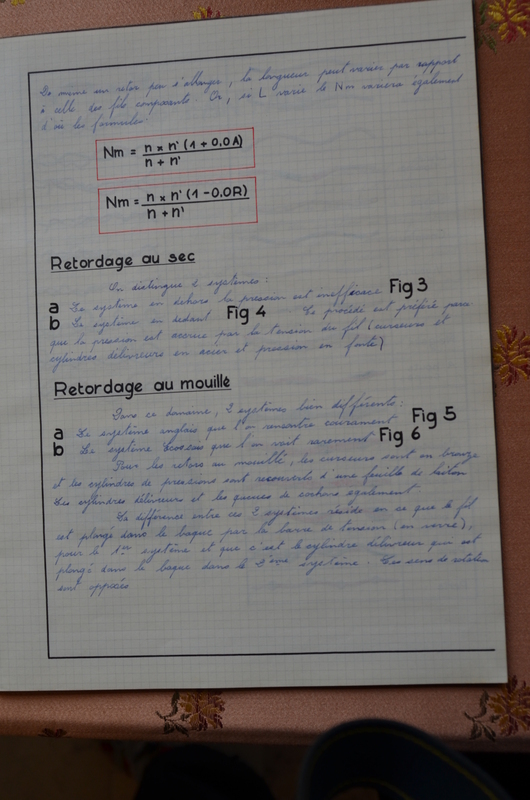 De même un retors peu s'allonger, la longueur peut varier par rapport
à celle des fils composants. Or, si L varie le Nm variera également
d'où les formules:
Nm = n x n' (1 + 0.0A)
n + n'
Nm = n x n' (1 - 0.0R)
n + n'
Retordage au sec
On distingue 2 systèmes:
a Le système en dehors la pression est inefficace Fig 3
b Le système en dedans Fig 4 Ce procédé est préféré parce
que la pression est accrue par la tension du fil (curseurs et
cylindres délivreurs en acier et pression en fonte)
Retordage au mouillé
Dans ce domaine, 2 systèmes bien différents:
a Le système anglais que l'on rencontre couramment Fig 5
b Le système Ecossais que l'on voit rarement Fig 6
Pour les retors au mouillé, les curseurs sont en bronze
et les cylindres de pressions sont recouverts d'une feuille de laiton
Les cylindres délivreurs et les queues de cochons également
La différence entre ces 2 systèmes réside en ce que le fil
est plongé dans le baque par la barre de tension (en verre),
pour le 1er système et que c'est le cylindre délivreur qui est
plongé dans le baque dans le 2ème système. Les sens de rotation
sont opposés